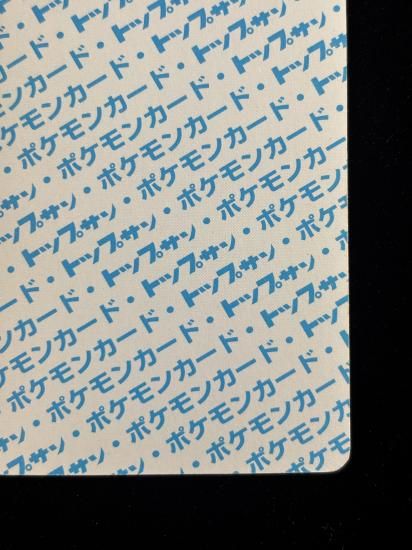 ンカード・トップサン
モンカード・トップサン・
・ポケモンカード・トップサン・
サン・ポケモンカード・トップサン・
トップサン・ポケモンカード・
・トップサン・ポケモンカード・
・トップサン・ポケモン
ード・トップサン・ポケ
カード・トップサン・ポ
ンカード・トップサン・
モンカード・トップサン
ケモンカード・トップ
・ポケモンカード・
サン・ポケモンカード
トップサン・ポケモン
トップ